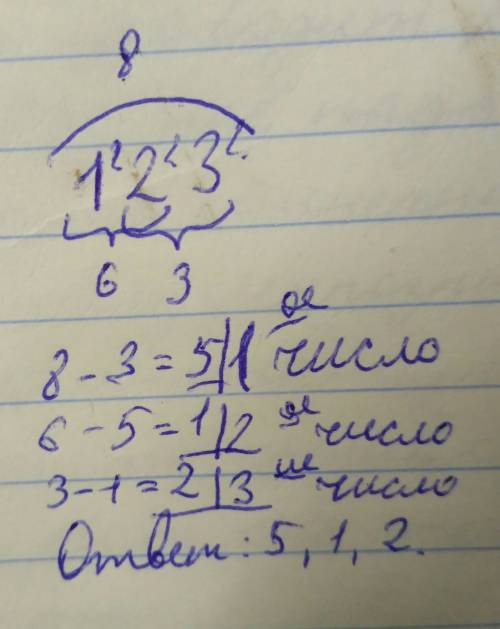 8
1 2 3
6 3
8 - 3 = 5 | 1 ое число
6 - 5 = 1 | 2 ое число
3 - 1 = 2 | 3 ье число
Ответ: 5, 1, 2.